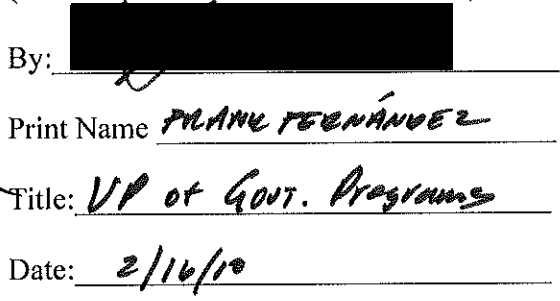 By:
Print Name FRANK FERNÁNDEZ
Title: VP of Govt. Programs
Date: 2/16/10